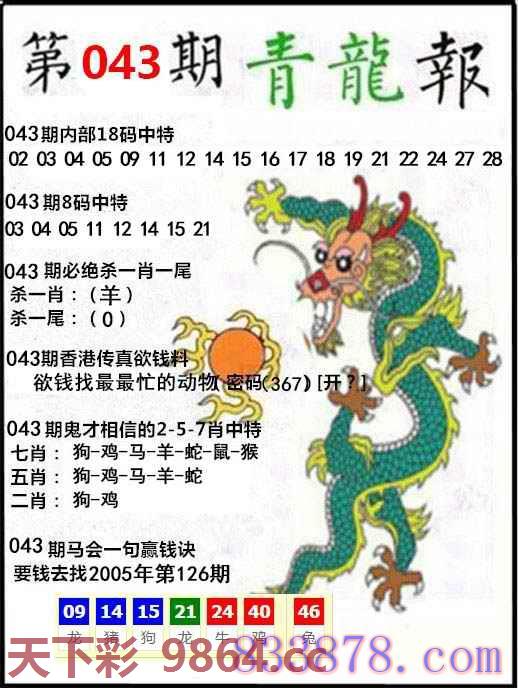 第043期青龍報
043期内部18码中特
02 03 04 05 09 11 12 14 15 16 17 18 19 21 22 24 27 28
043期8码中特
03 04 05 11 12 14 15 21
043期必绝杀一肖一尾
杀一肖：(羊)
杀一尾：(0)
043期香港传真欲钱料
欲钱找最最忙的动物(密码(367)[开?]
043期鬼才相信的2-5-7肖中特
七肖：狗-鸡-马-羊-蛇-鼠-猴
五肖：狗-鸡-马-羊-蛇
二肖：狗-鸡
043期马会一句赢钱诀
要钱去找2005年第126期
09 14 15 21 24 40 46
龙 猪 狗 龙 牛 鸡 兔
天下彩 9864.cc
833878.com